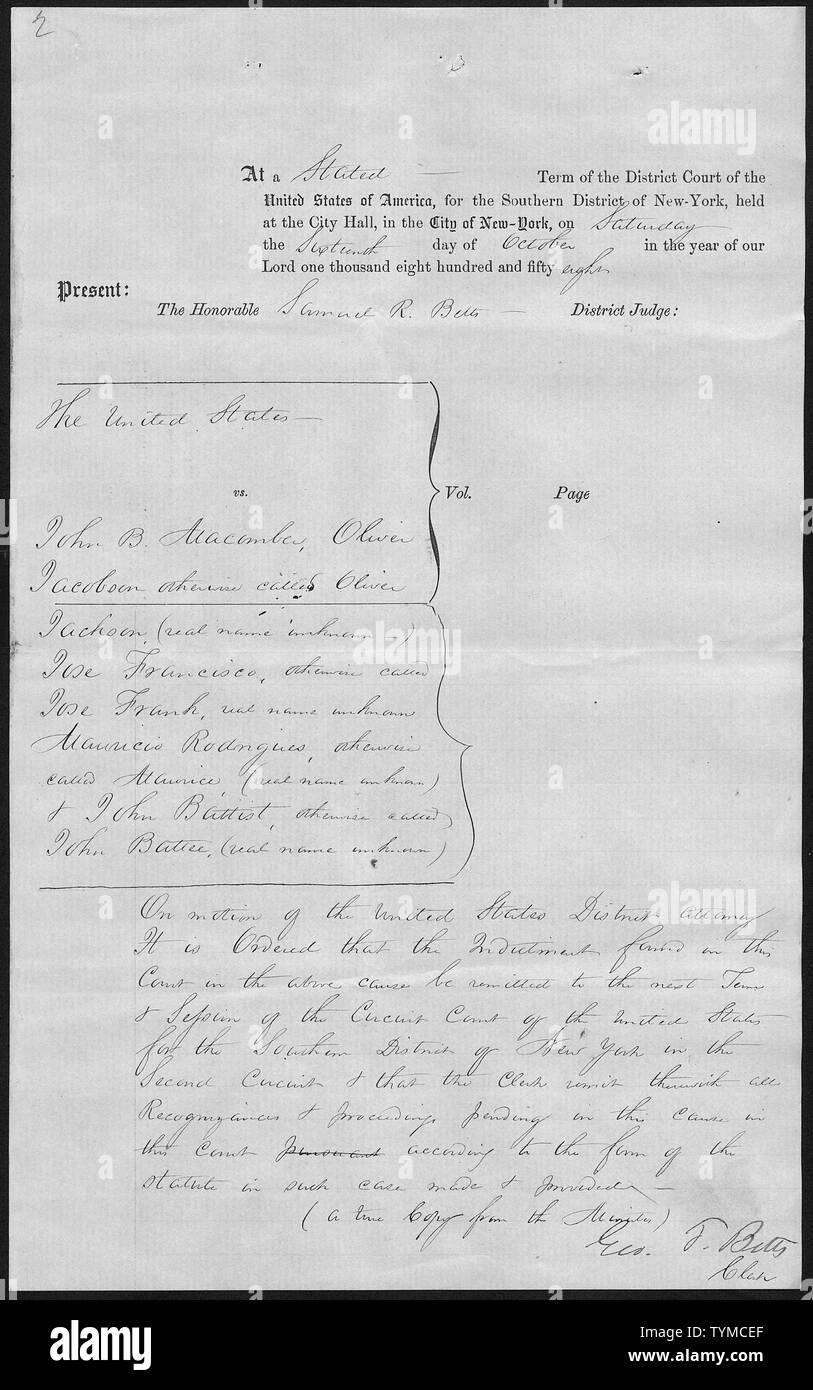 2
At a Stated — Term of the District Court of the
United States of America, for the Southern District of New-York, held
at the City Hall, in the City of New-York, on Saturday
the Sixteenth day of October in the year of our
Lord one thousand eight hundred and fifty eight
Present:
The Honorable Samuel R. Betts — District Judge:
The United States —
vs.
Vol. Page
John B. Macomber, Oliver
Jacobson otherwise called Oliver
Jackson, (real name unknown)
Jose Francisco, otherwise called
Jose Frank, real name unknown
Mauricio Rodrigues, otherwise
called Maurice, (real name unknown)
& John Battist, otherwise called
John Battee, (real name unknown)
On motion of the United States District Attorney
It is Ordered that the Indictment found in this
Court in the above cause be remitted to the next Term
& Session of the Circuit Court of the United States
for the Southern District of New York in the
Second Circuit & that the Clerk remit therewith all
Recognizances & proceedings pending in this cause in
this Court pursuant according to the form of the
statute in such case made & provided —
(a true Copy from the Minutes)
Geo. F. Betts
Clerk
alamy
alamy
alamy
alamy
Image ID: TYMCEF
www.alamy.com